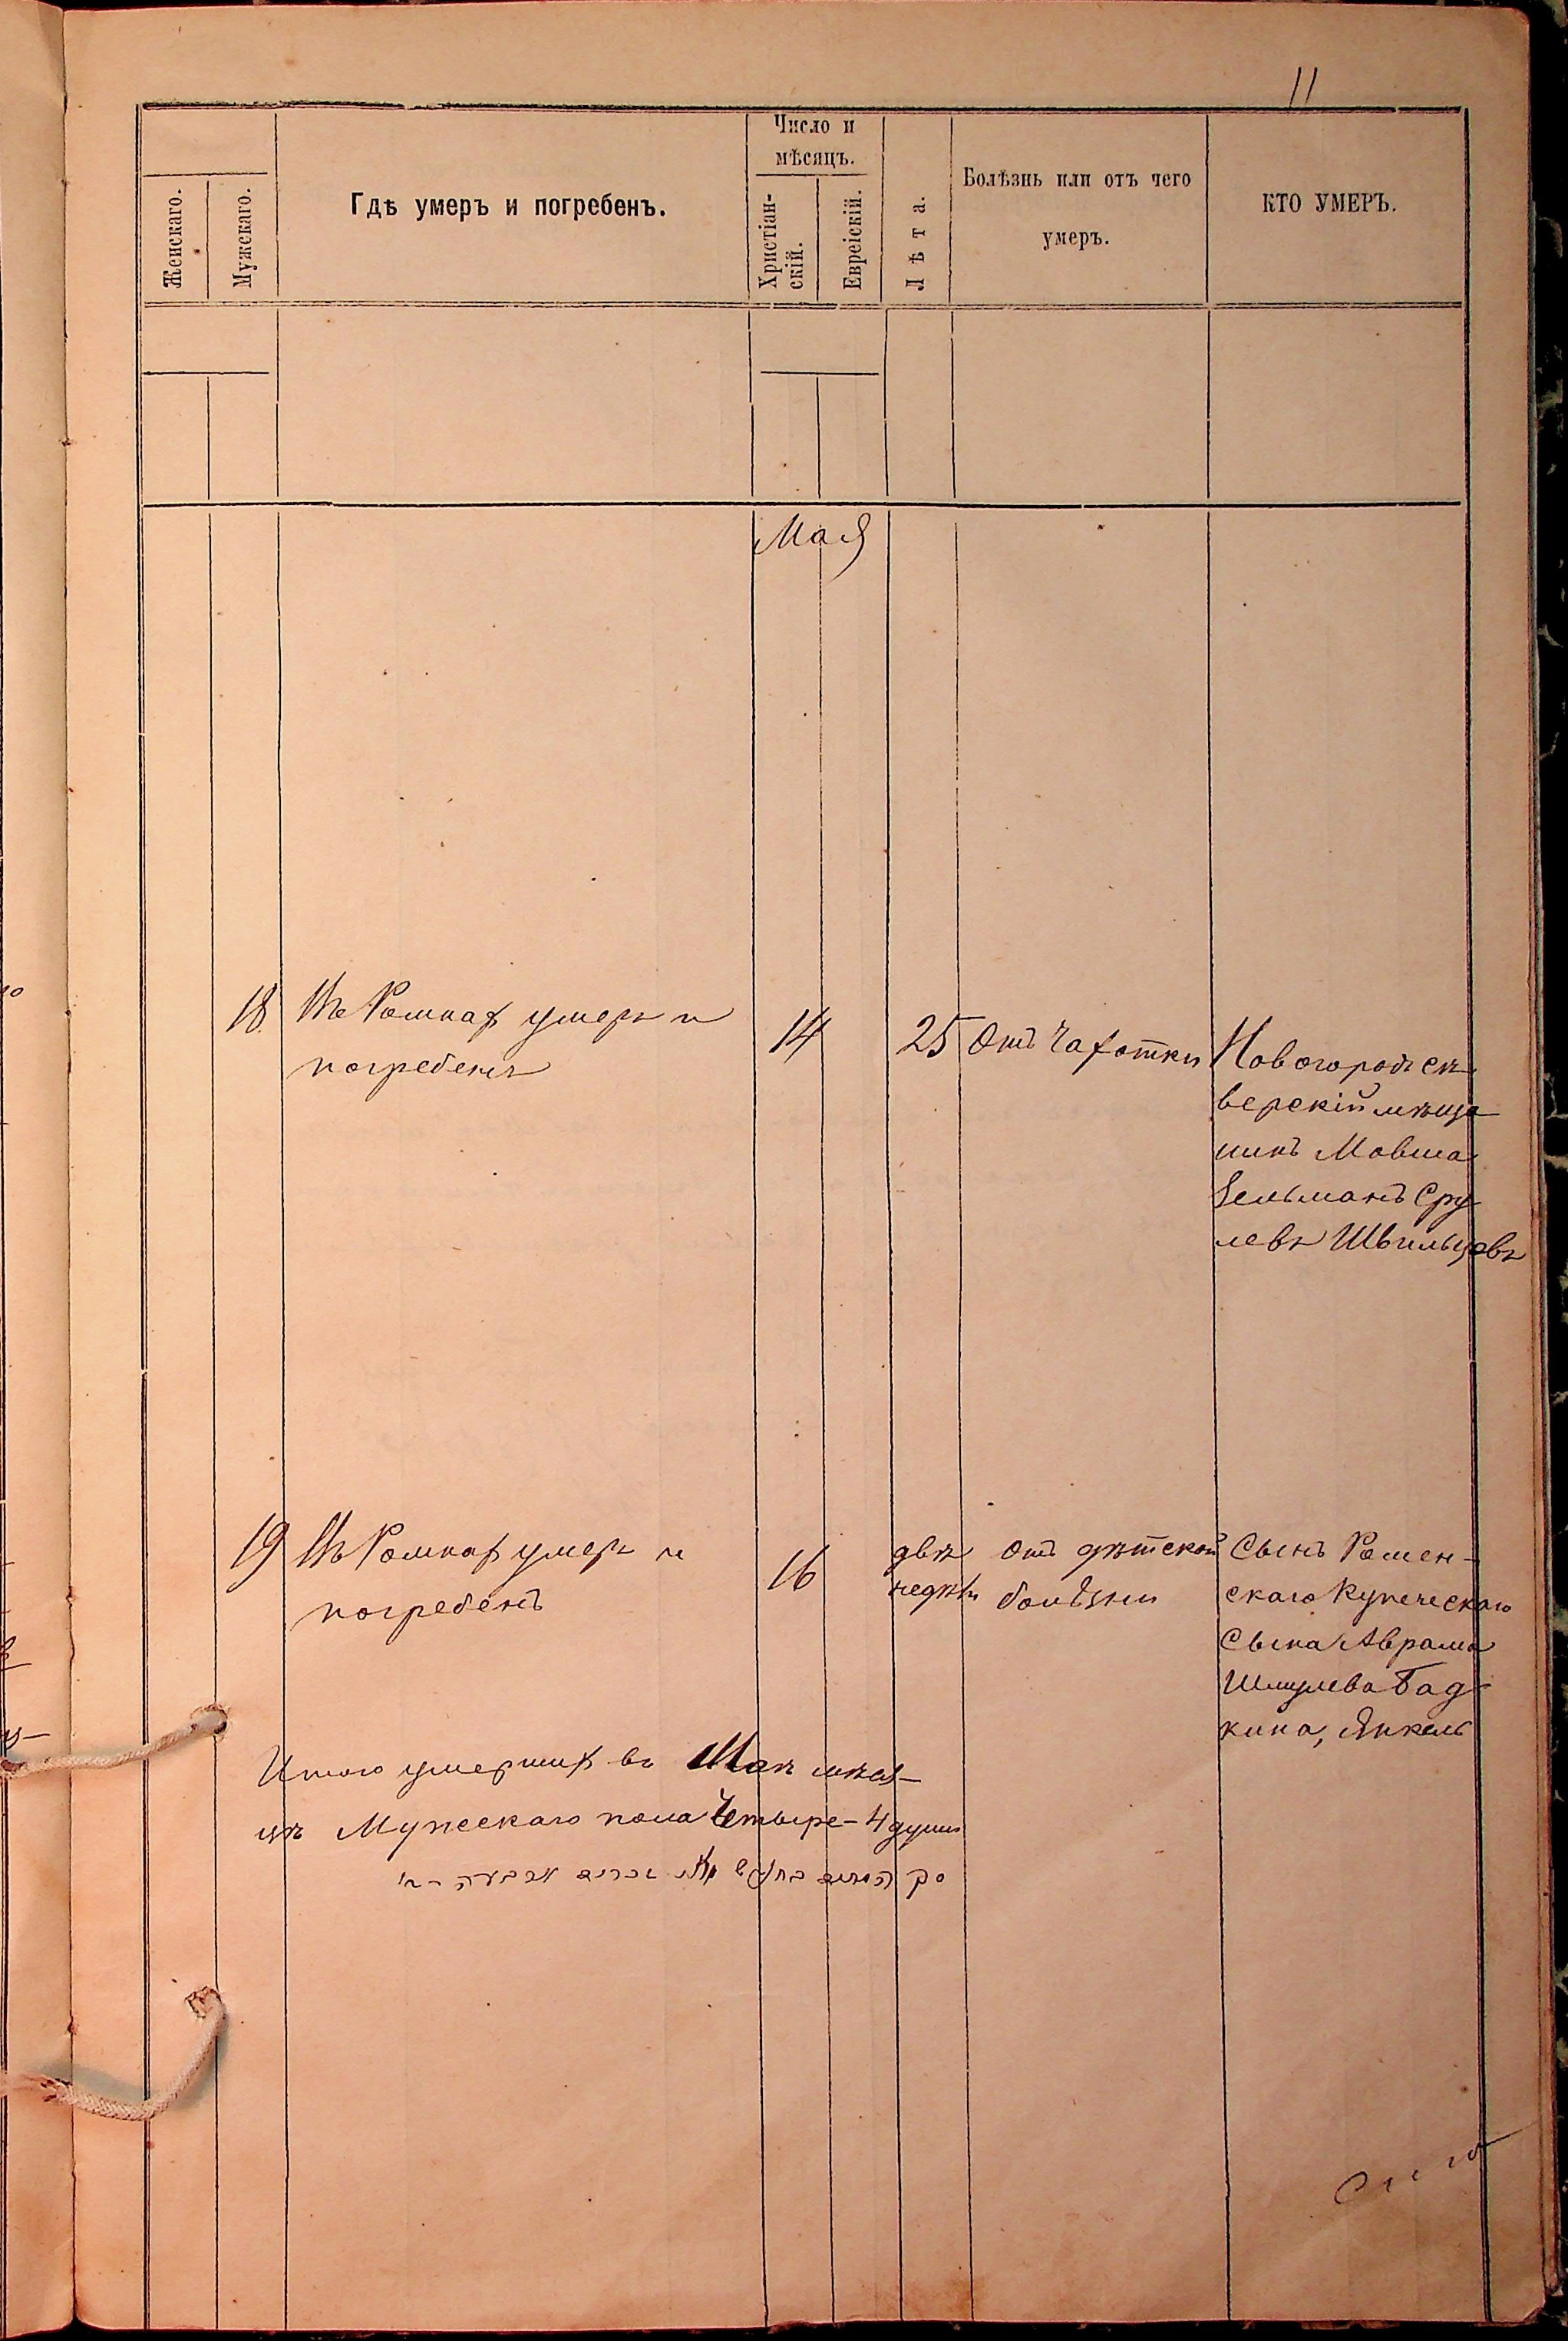 11
Число и
мѣсяцъ.
Женскаго.
Мужескаго.
Гдѣ умеръ и погребенъ.
Христіан-
скій.
Еврейскій.
Лѣта.
Болѣзнь или отъ чего
умеръ.
КТО УМЕРЪ.
Мая
18
Въ Ромнах умеръ и
погребенъ
14
25
Отъ Чахотки
Новогородсѣ
верскій мѣща
нинъ Мовша
Зельманъ Сру
левъ Швильцовъ
19
Въ Ромнах умеръ и
погребенъ
16
двѣ
недѣли
Отъ дѣтской
болѣзни
Сынъ Ромен-
скаго Купеческаго
Сына Аврама
Шмулева Бад
кина, Янкель
Итого умерших въ Маѣ мѣся-
цѣ Мужескаго пола Четыре - 4 души
סך